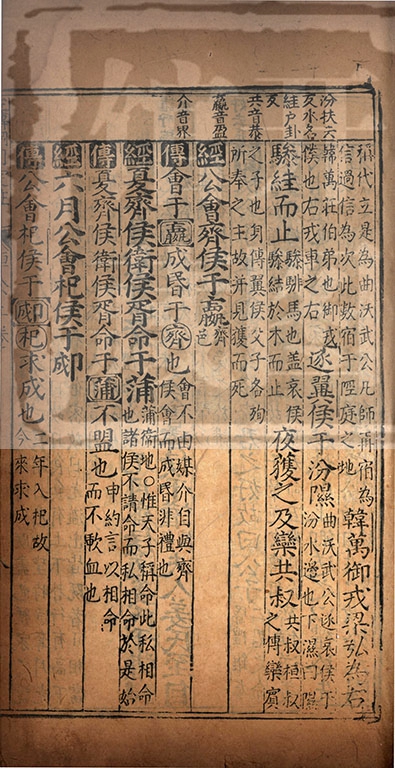 汾扶云
反水名
絓户卦
反
共音恭
嬴音盈
介音界
稱代立是為曲沃武公凡師再宿為
信過信為次此數宿于陘庭之地
韓萬御戎梁弘為右
韓萬莊伯弟也御戎
僕也右戎車之右
逐翼侯于汾隰
曲沃武公逐哀侯于
汾水邊也下濕曰隰
驂絓而止
驂騑馬也盖哀侯
驂絓於木而止
夜獲之及欒共叔
共叔桓叔
之傅欒賓
之子也身傅翼侯父子各殉
所奉之主故并見獲而死
經公會齊侯于嬴
齊邑
傳會于嬴成昏于齊也
會不由媒介自與齊
侯會而成昏非禮也
經夏齊侯衛侯胥命于蒲
蒲衛地○惟天子稱命此私相命
也諸侯不請命而私相命於是始
傳夏齊侯衛侯胥命于蒲不盟也
申約言以相命
而不歃血也
經六月公會杞侯于郕
傳公會杞侯于郕杞求成也
二年入杞故
今來求成